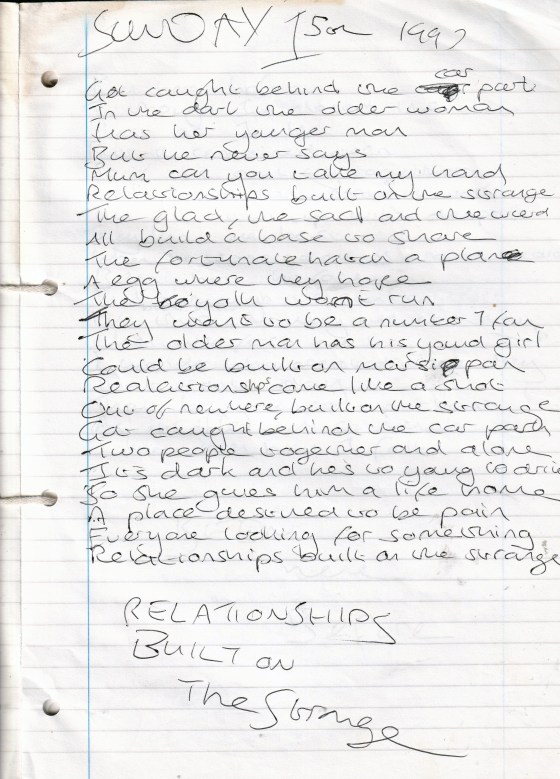 SUNDAY 15 1997
car
Got caught behind the park
In the dark the older woman
Has her younger man
But he never says
Mum can you take my hand
Relationships built on the strange
The glad, the sad and the weird
All build a base to share
The fortunate hatch a plan
A egg where they hope
The yolk wont run
They want to be a number 1 fan
The older man has his young girl
Could be built on marsipan
Realationships come like a shot
Out of nowhere, built on the strange
Got caught behind the car park
Two people together and alone
It's dark and he's to young to
So she gives him a life home
A place destined to be pain
Everyone looking for something
Relationships built on the strange
RELATIONSHIPS
BUILT ON
The Strange